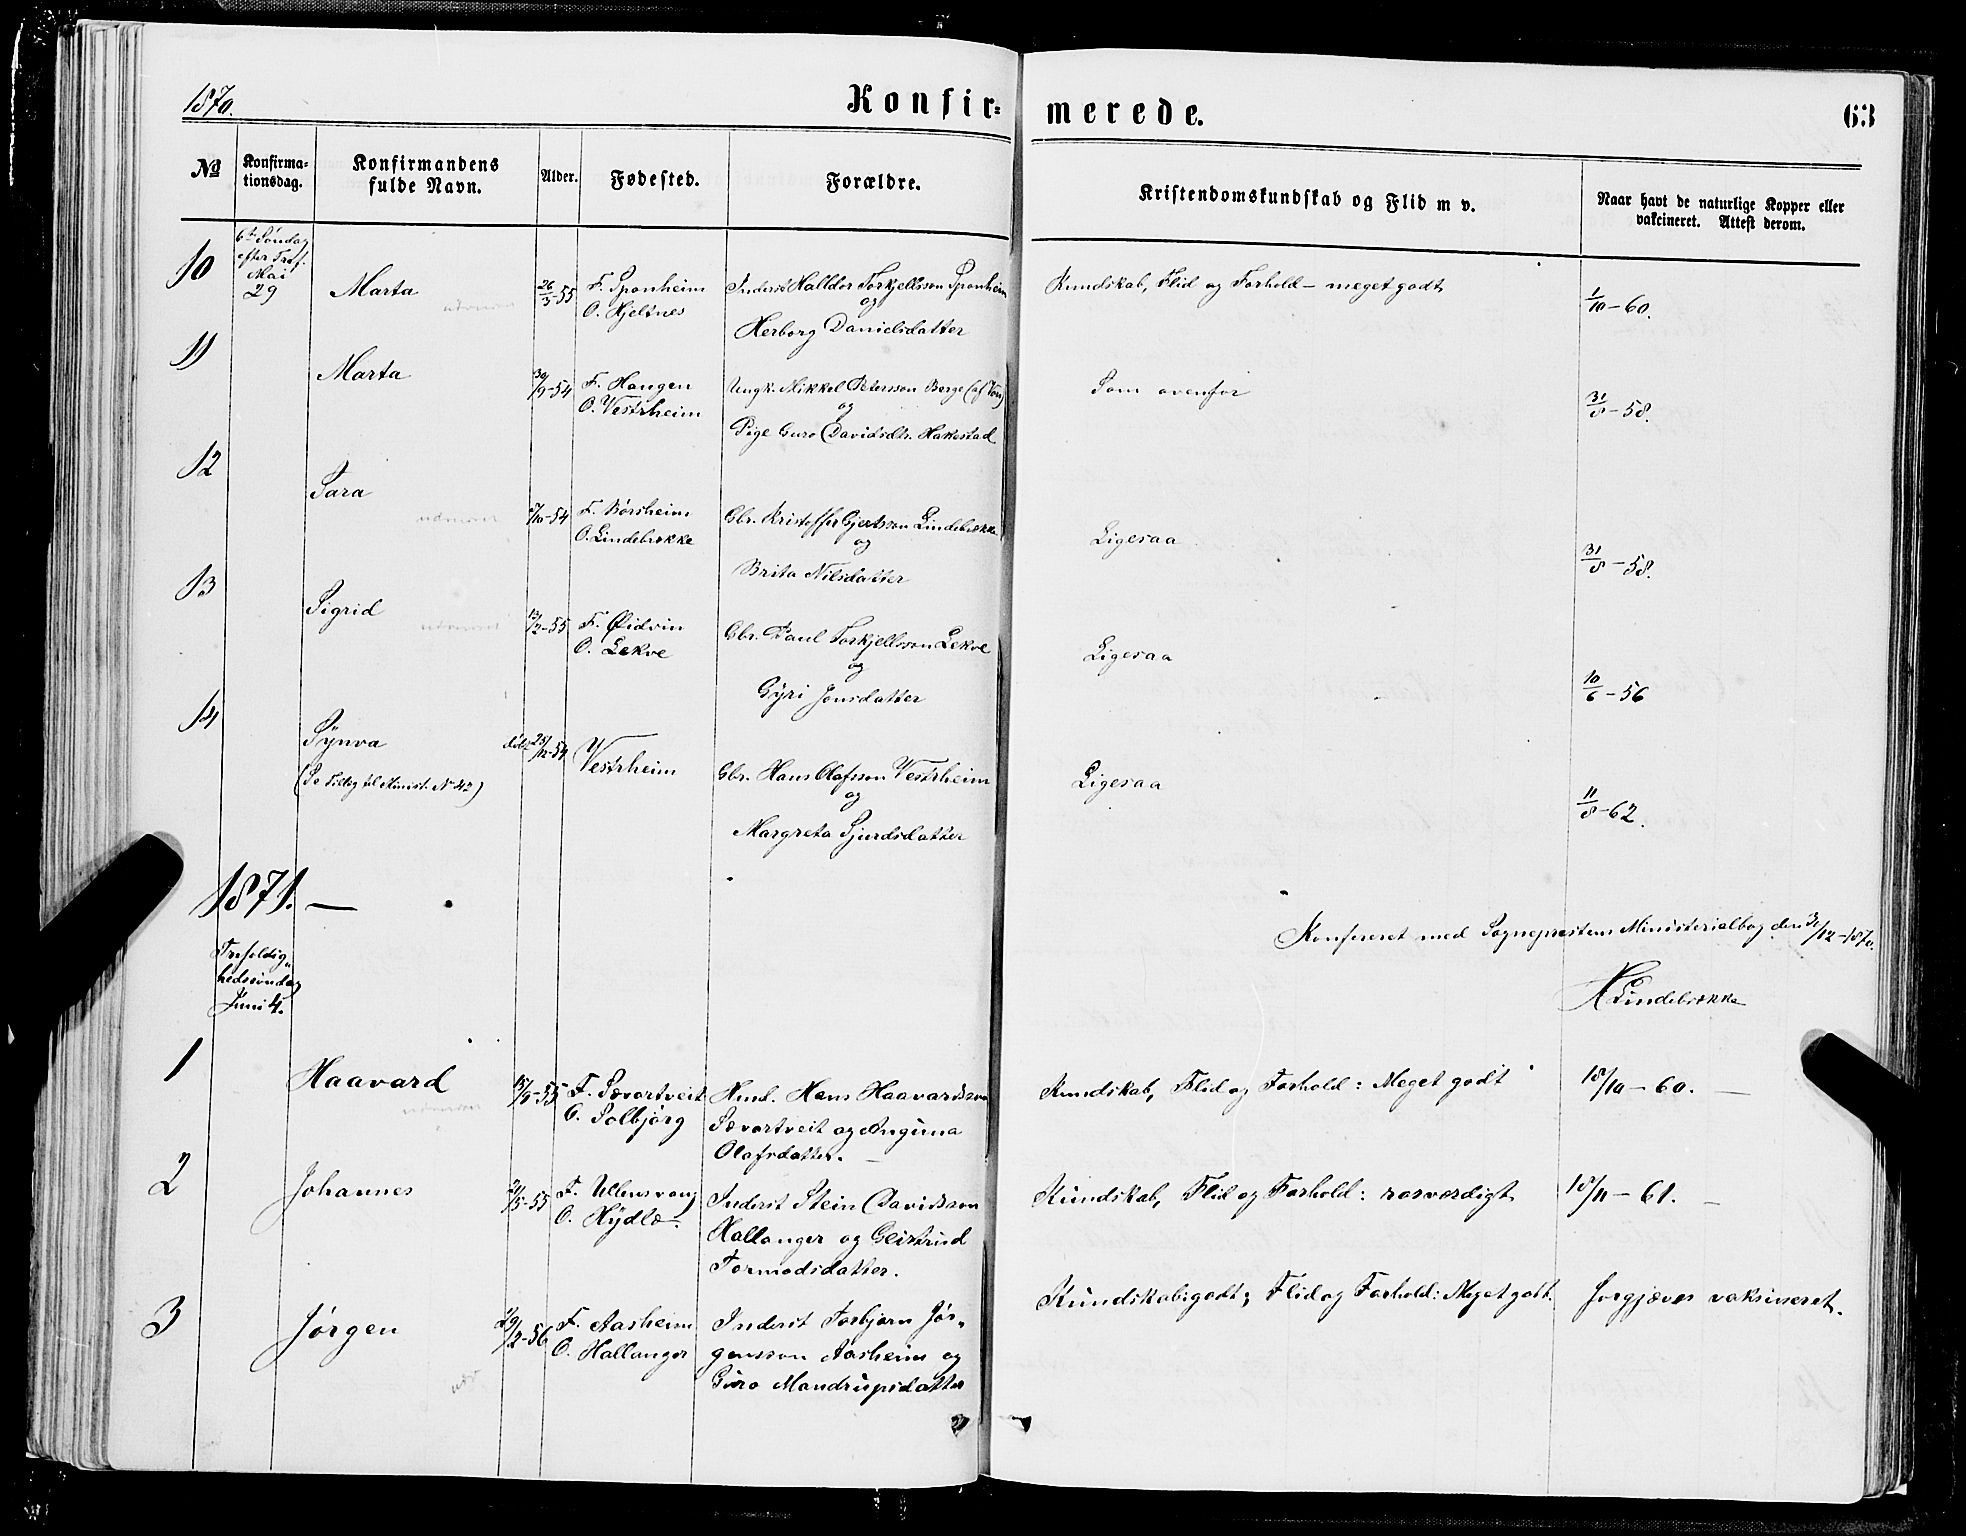 1870.
Konfir=
merede.
63
No
Konfirma-
tionsdag.
Konfirmandens
fulde Navn.
Alder.
Fødested.
Forældre.
Kristendomskundskab og Flid m v.
Naar havt de naturlige Kopper eller
vakcineret. Attest derom.
10
6te Søndag
efter Tref.
Mai
29
Marta
26/3-55
F. Sponheim
O. Hjeltnes
Inderst Halldor Torkjellsson Sponheim
og
Herborg Danielsdatter
Kundskab, Flid og Forhold - meget godt
1/10-60.
11
Marta
30/9-54
F. Haugen
O. Vestrheim
Ungk. Mikkel Petersson Berge (af Vos)
og
Pige Guro Davidsdtr. Hakestad
Som ovenfor
31/8-58.
12
Sara
/10-54
F. Børsheim
O. Lindebrekke
Gbr. Kristoffer Gjertsson Lindebrekke
og
Brita Nilsdatter
Ligesaa
31/8-58.
13
Sigrid
13/2-55
F. Øidvin
O. Lekve
Gbr. Paul Torkjellsson Lekve
og
Gÿri Jonsdatter
Ligesaa
10/6-56
14
Sÿnva
(Se Tillæg til Minist. No 42)
døbt 25/12-54
Vestrheim
Gbr. Hans Olafsson Vestrheim
og
Margreta Sjurdsdatter
Ligesaa
11/8-62.
1871. —
Konfereret med Sogneprestens Ministerialbog den 31/12-1870.
Lindebrekke
Trefoldig-
hedssøndag
Juni 4.
1
Haavard
15/9-55
F. Sævartveit
O. Solbjørg
Hmd. Hans Haavardsson
Sævartveit og Anguna
Olafsdatter. —
Kundskab, Flid og Forhold: Meget godt
18/10-60. —
2
Johannes
/5-55
F. Ullensvang
O. Hÿdle.
Inderst Stein Davidsson
Hallanger og Geirtrud
Tormodsdatter.
Kundskab, Flid og Forhold: rosværdigt
18/11-61. —
3
Jørgen
29/2-56
F. Aasheim
O. Hallanger
Inderst Torbjørn Jør-
gensson Aasheim og
Guro Mandrupsdatter
Kundskab: godt; Flid og Forhold: Meget godt.
forgjæves vaksineret.